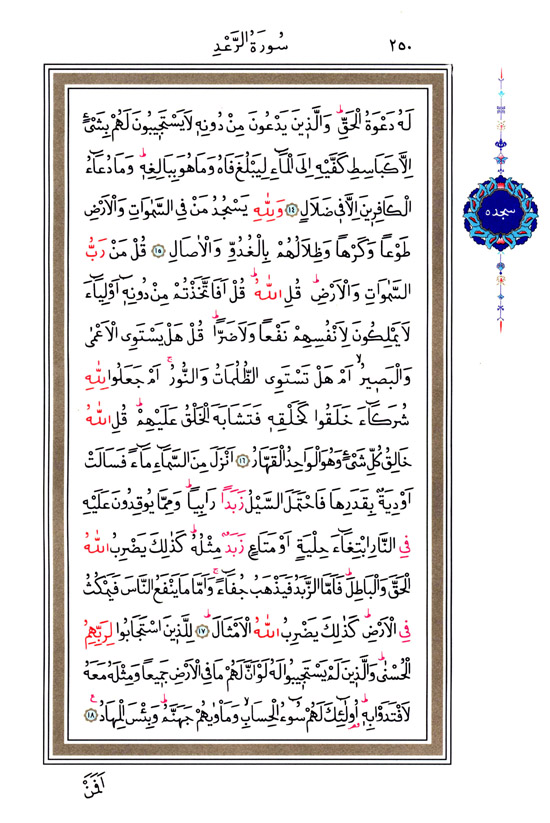 ٢٥٠
سُورَةُ الرَّعْدِ
لَهُ دَعْوَةُ الْحَقِّۜ وَالَّذ۪ينَ يَدْعُونَ مِنْ دُونِه۪ لَا يَسْتَج۪يبُونَ لَهُمْ بِشَىْءٍ
اِلَّا كَبَاسِطِ كَفَّيْهِ اِلَى الْمَٓاءِ لِيَبْلُغَ فَاهُ وَمَا هُوَ بِبَالِغِه۪ۜ وَمَا دُعَٓاءُ
الْكَافِر۪ينَ اِلَّا ف۪ى ضَلَالٍ ﴿١٤﴾ وَلِلّٰهِ يَسْجُدُ مَنْ فِى السَّمٰوَاتِ وَالْاَرْضِ
طَوْعًا وَكَرْهًا وَظِلَالُهُمْ بِالْغُدُوِّ وَالْاٰصَالِ ﴿١٥﴾ قُلْ مَنْ رَبُّ
السَّمٰوَاتِ وَالْاَرْضِۜ قُلِ اللّٰهُۜ قُلْ اَفَاتَّخَذْتُمْ مِنْ دُونِه۪ٓ اَوْلِيَٓاءَ
لَا يَمْلِكُونَ لِاَنْفُسِهِمْ نَفْعًا وَلَا ضَرًّاۜ قُلْ هَلْ يَسْتَوِى الْاَعْمٰى
وَالْبَص۪يرُۙ اَمْ هَلْ تَسْتَوِى الظُّلُمَاتُ وَالنُّورُۚ اَمْ جَعَلُوا لِلّٰهِ
شُرَكَٓاءَ خَلَقُوا كَخَلْقِه۪ فَتَشَابَهَ الْخَلْقُ عَلَيْهِمْۜ قُلِ اللّٰهُ
خَالِقُ كُلِّ شَىْءٍ وَهُوَ الْوَاحِدُ الْقَهَّارُ ﴿١٦﴾ اَنْزَلَ مِنَ السَّمَٓاءِ مَٓاءً فَسَالَتْ
اَوْدِيَةٌ بِقَدَرِهَا فَاحْتَمَلَ السَّيْلُ زَبَدًا رَابِيًاۜ وَمِمَّا يُوقِدُونَ عَلَيْهِ
فِى النَّارِ ابْتِغَٓاءَ حِلْيَةٍ اَوْ مَتَاعٍ زَبَدٌ مِثْلُهُۜ كَذٰلِكَ يَضْرِبُ اللّٰهُ
الْحَقَّ وَالْبَاطِلَۜ فَاَمَّا الزَّبَدُ فَيَذْهَبُ جُفَٓاءًۚ وَاَمَّا مَا يَنْفَعُ النَّاسَ فَيَمْكُثُ
فِى الْاَرْضِۜ كَذٰلِكَ يَضْرِبُ اللّٰهُ الْاَمْثَالَۜ ﴿١٧﴾ لِلَّذ۪ينَ اسْتَجَابُوا لِرَبِّهِمُ
الْحُسْنٰىۜ وَالَّذ۪ينَ لَمْ يَسْتَج۪يبُوا لَهُ لَوْ اَنَّ لَهُمْ مَا فِى الْاَرْضِ جَم۪يعًا وَمِثْلَهُ مَعَهُ
لَافْتَدَوْا بِه۪ۜ اُولٰٓئِكَ لَهُمْ سُٓوءُ الْحِسَابِ وَمَاْوٰيهُمْ جَهَنَّمُۜ وَبِئْسَ الْمِهَادُ۟ ﴿١٨﴾
اَفَمَنْ
سجده